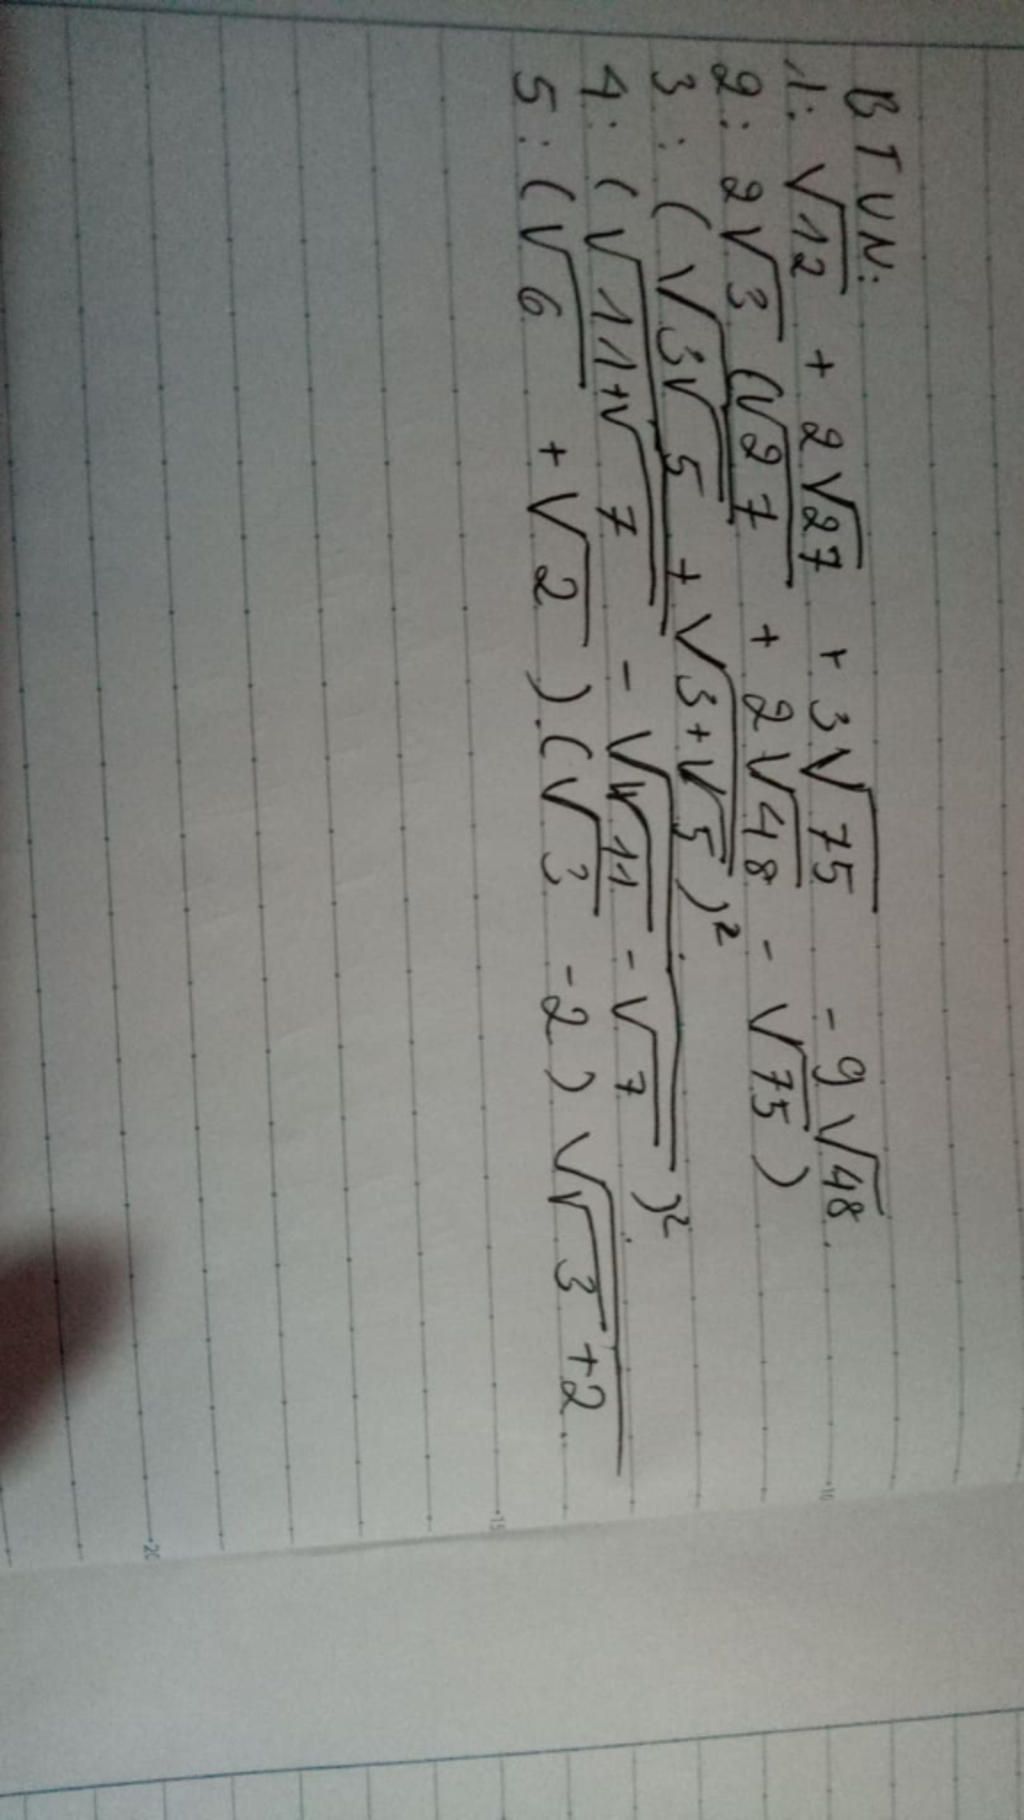 BTVN:
1: √12 + 2√27 + 3√75 - 9√48.
2: 2√3 (√27 + 2√48 - √75)
3: (√(3√5) + √(3+√5))².
4: (√(11+√7) - √(√11-√7))².
5: (√6 + √2).(√3 - 2) √(√3+2).
10
15
20